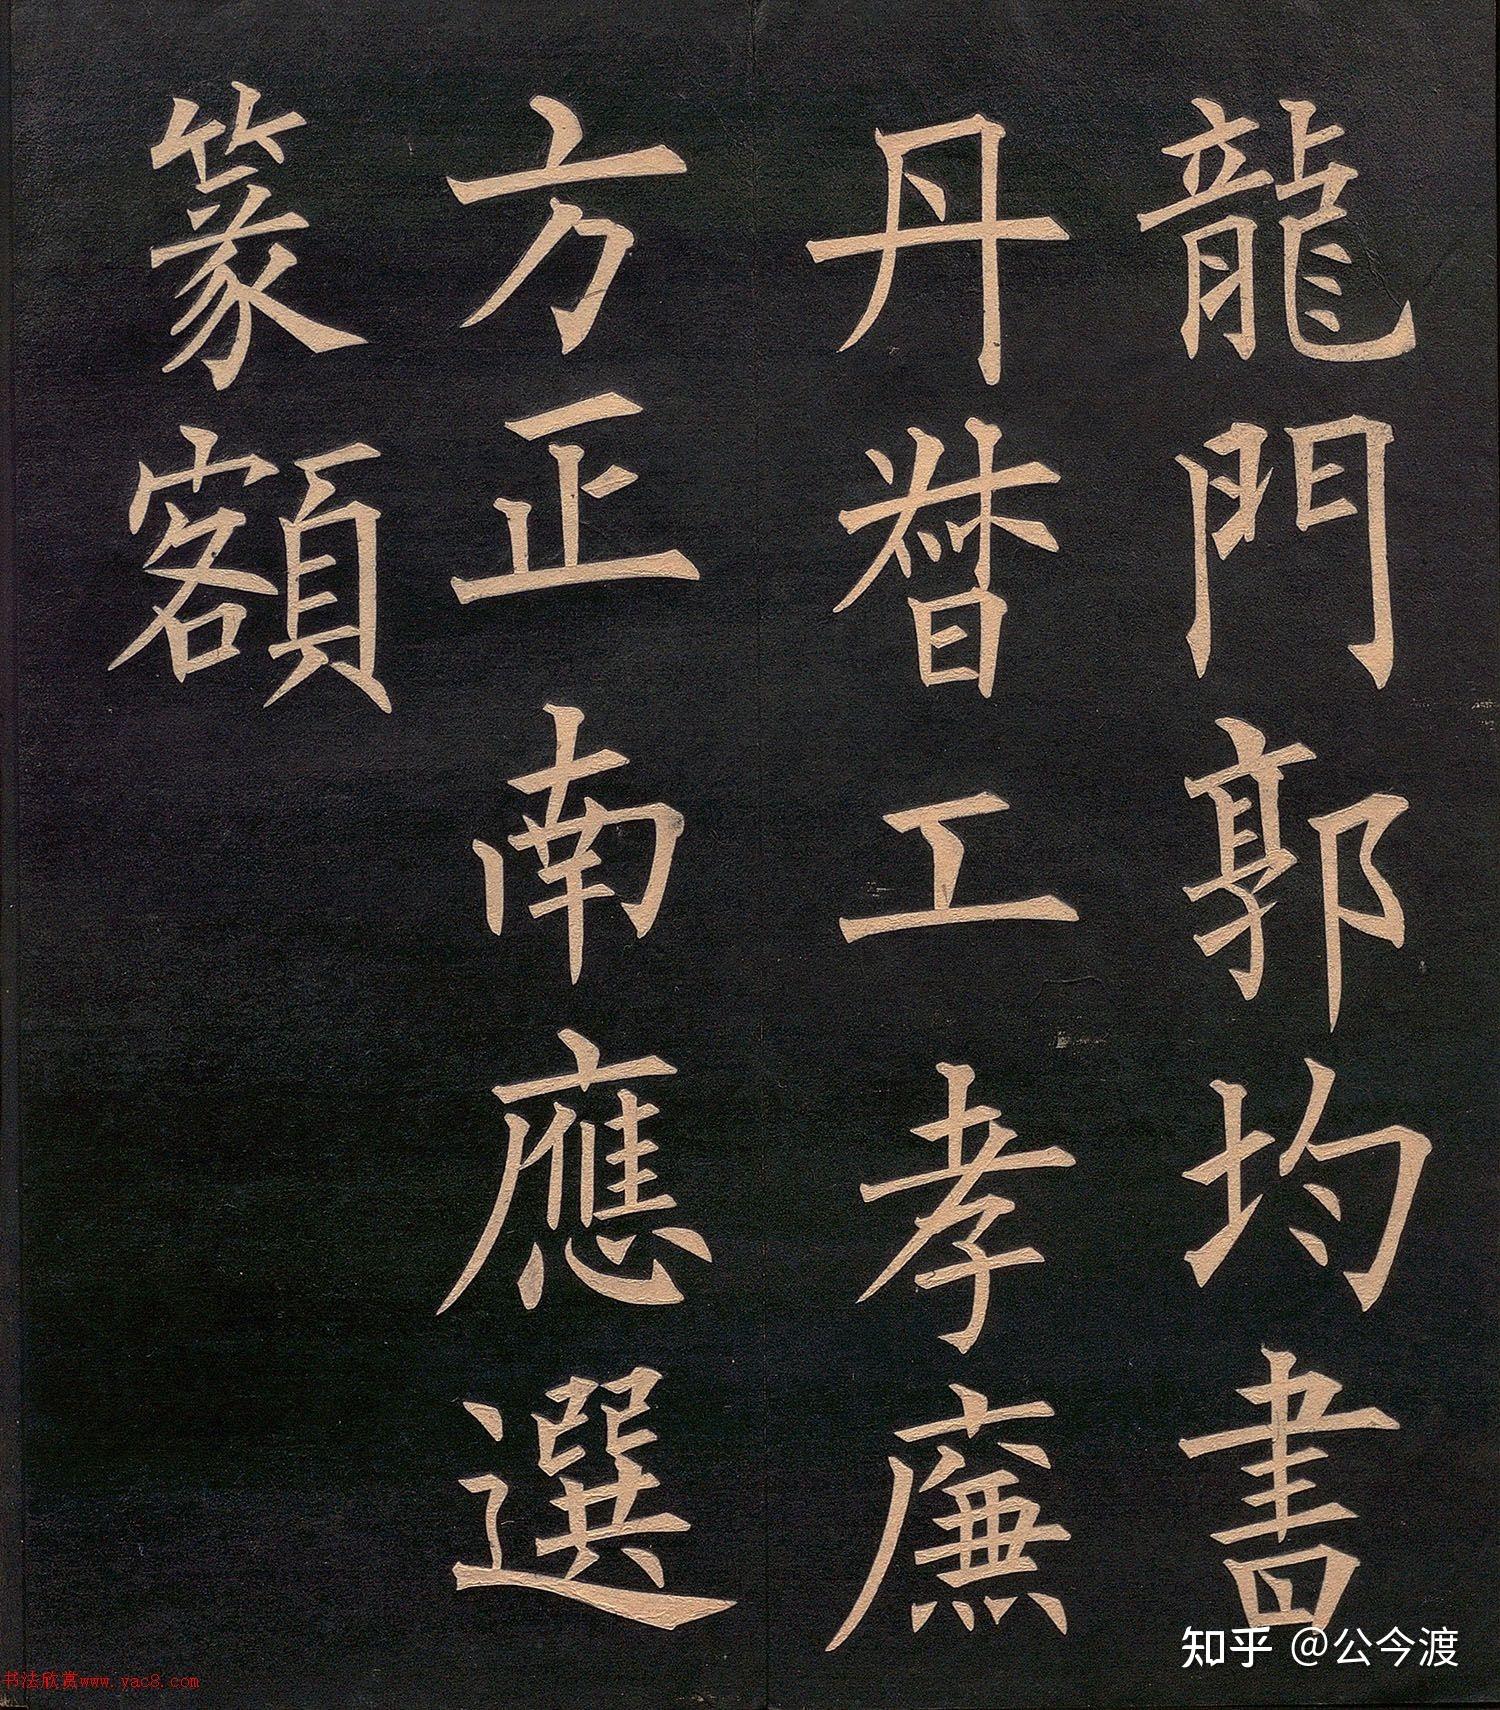 龍門郭均書
丹督工孝廉
方正南應選
篆額
知乎 @公今渡
书法欣赏www.yac8.com